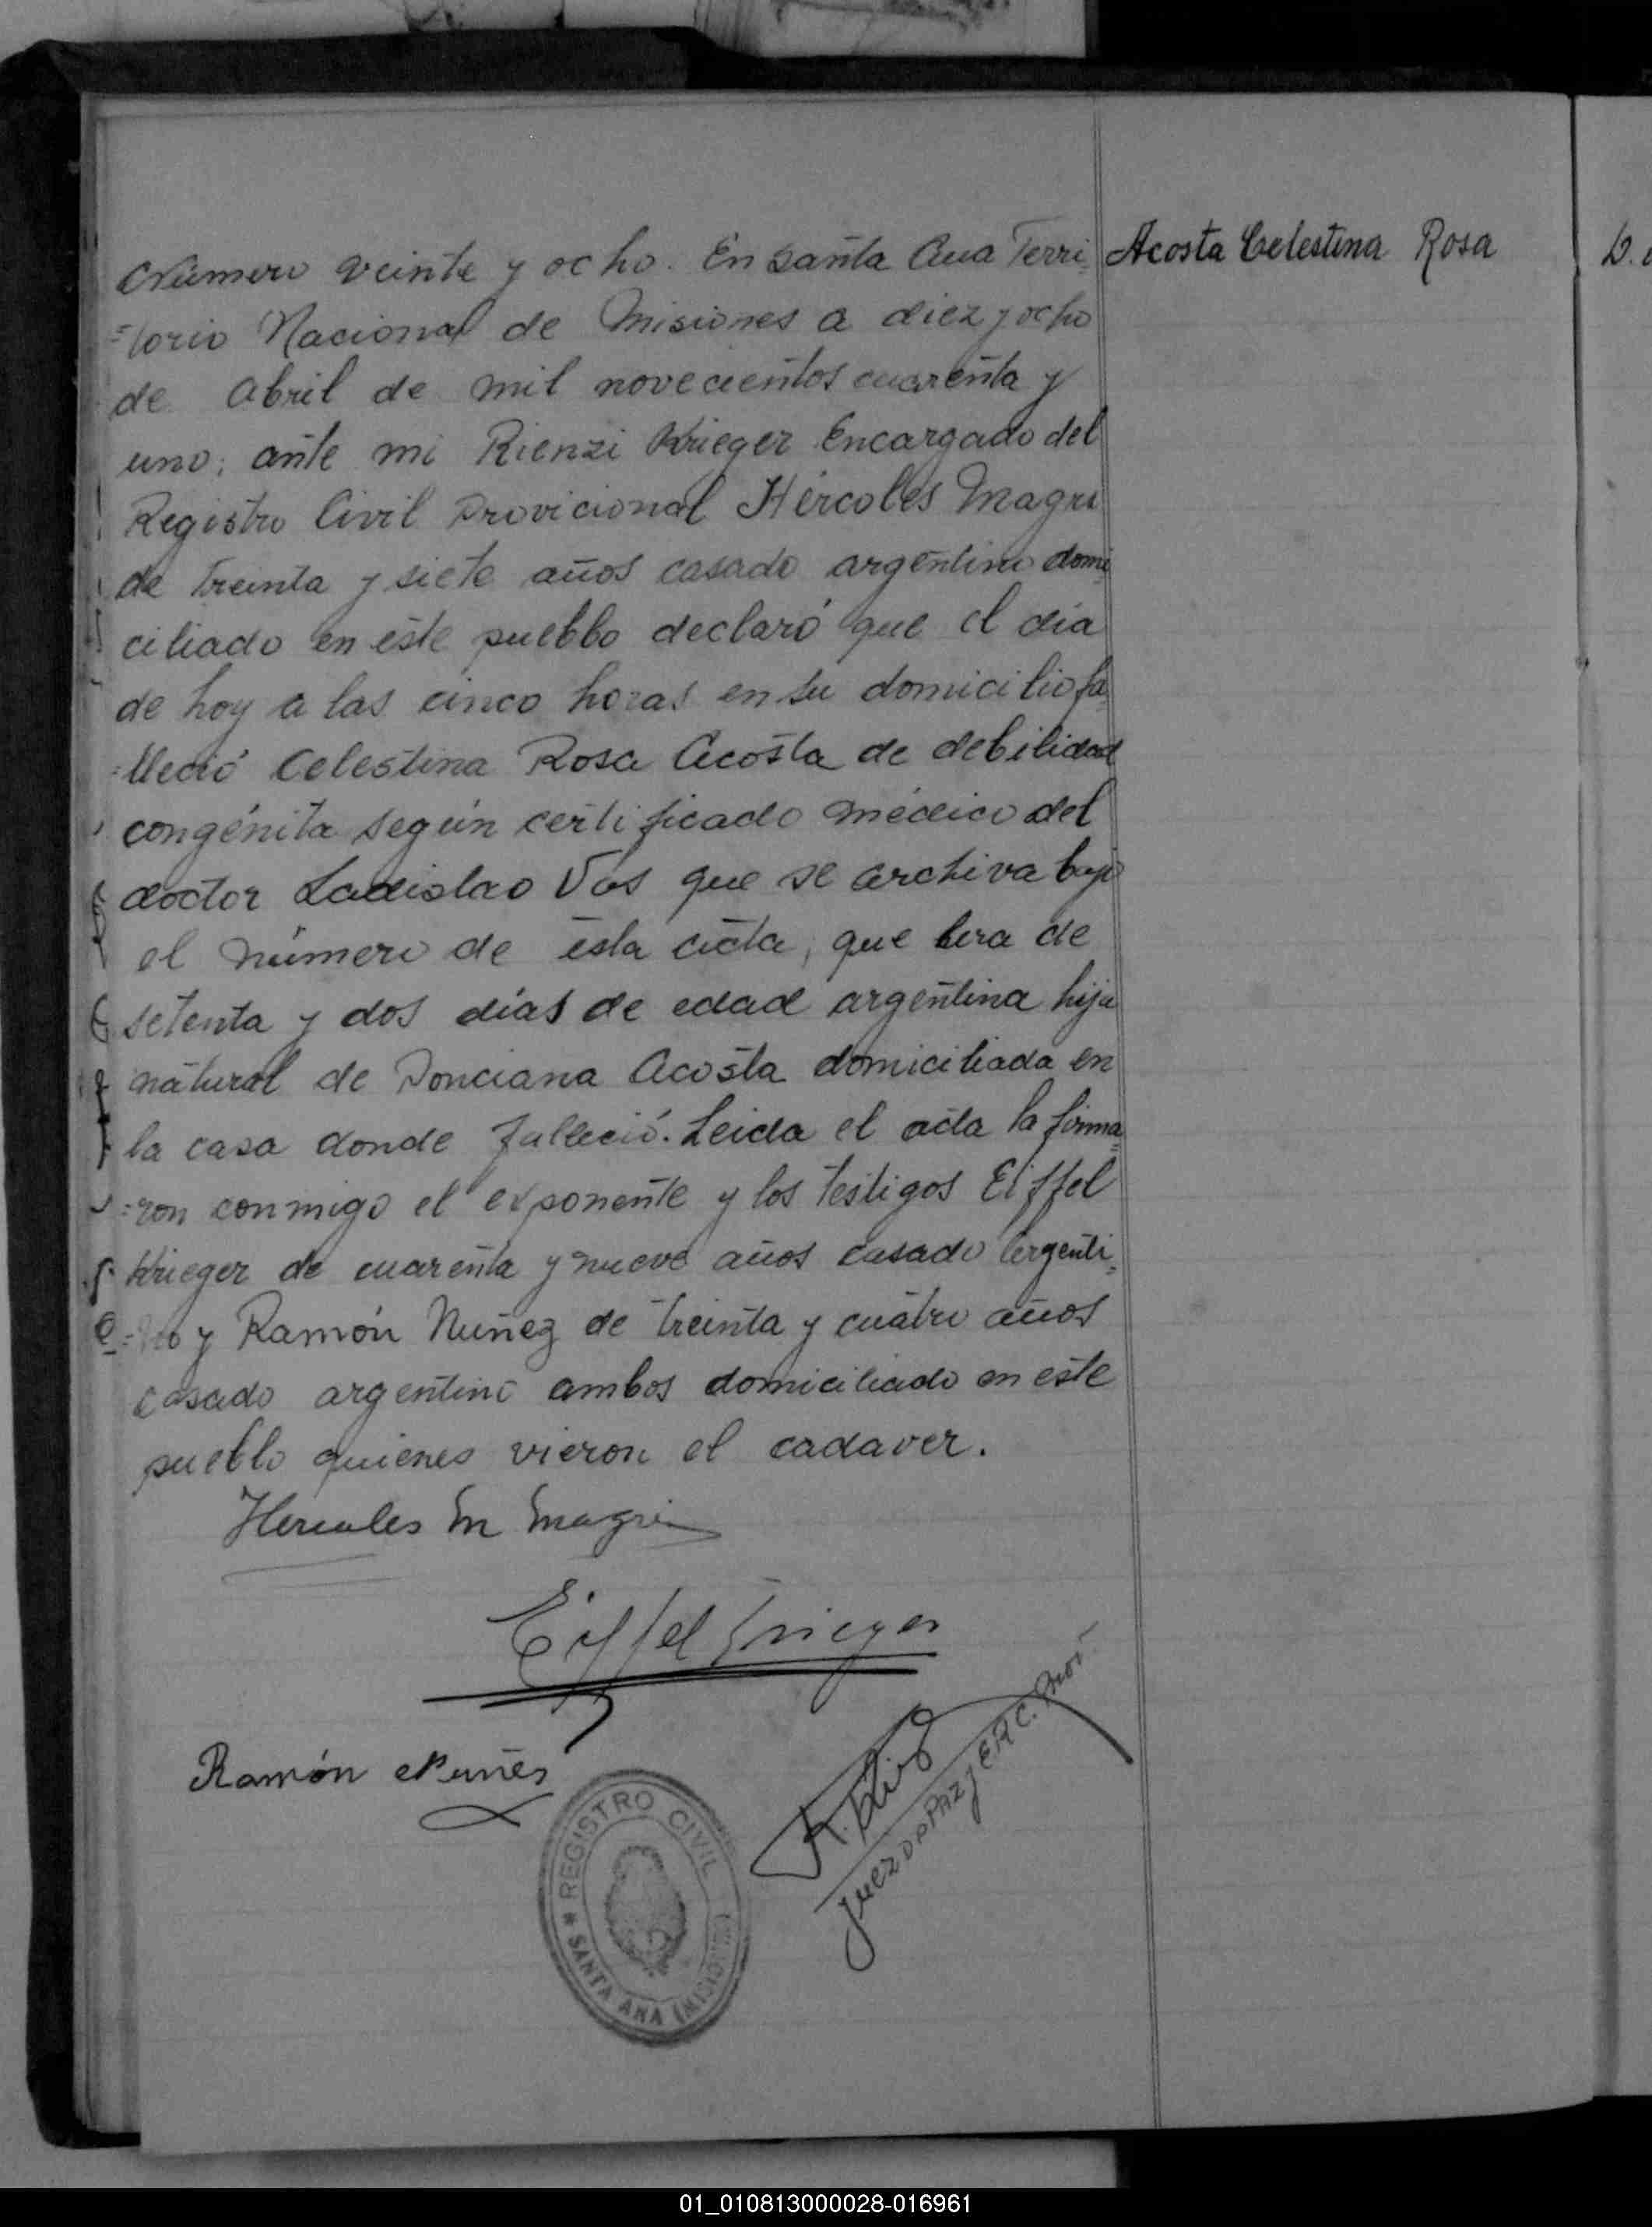 Número veinte y ocho. En Santa Ana Terri-
=torio Nacional de Misiones a diez y ocho
de Abril de mil novecientos cuarenta y
uno; ante mi Rienzi Krieger Encargado del
Registro Civil Provicional Hércoles Magri
de treinta y siete años casado argentino domi
ciliado en este pueblo declaró que el día
de hoy a las cinco horas en su domicilio fa
=lleció Celestina Rosa Acosta de debilidad
congénita según certificado médico del
doctor Ladislao Vas que se archiva bajo
el número de esta acta, que era de
setenta y dos días de edad argentina hija
natural de Ponciana Acosta domiciliada en
la casa donde falleció. Leida el acta la firma=
=ron conmigo el exponente y los testigos Eiffel
Krieger de cuarenta y nueve años casado argenti=
=no y Ramón Nuñez de treinta y cuatro años
casado argentino ambos domiciliado en este
pueblo quienes vieron el cadaver.
Acosta Celestina Rosa
Hercules M Magri
Eiffel Krieger
Ramón Nuñes
Juez de Paz y E R C. Prov.
REGISTRO CIVIL
* SANTA ANA (MISIONES)
01_010813000028-016961